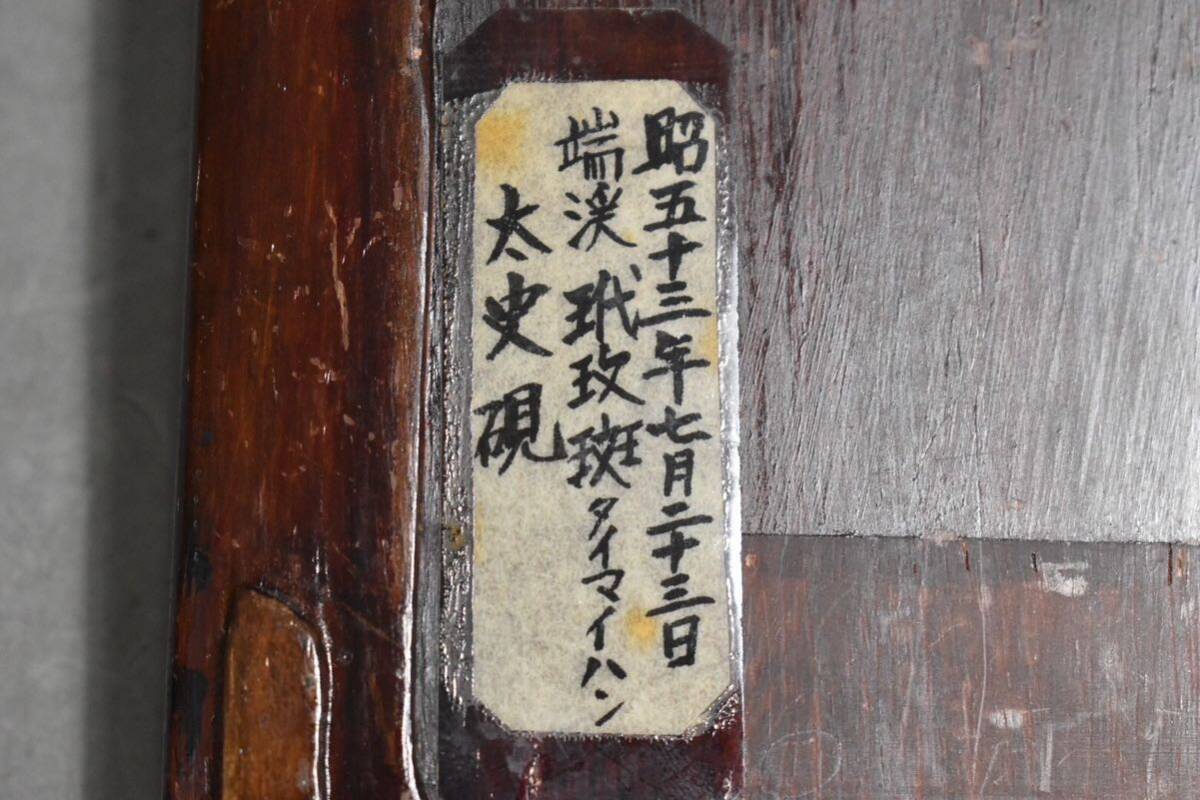 昭五十三年七月二十三日
端渓 玳玫斑タイマイハン
太史硯